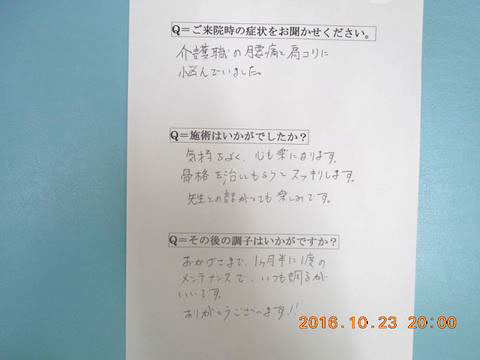 Q=ご来院時の症状をお聞かせください。
介護職の腰痛と肩コリに
悩んでいました。
Q=施術はいかがでしたか?
気持ちよく、心も楽になります。
骨格を治してもらうとスッキリします。
先生との話がとても楽しみです。
Q=その後の調子はいかがですか?
おかげさまで、1ヶ月半に1度の
メンテナンスで、いつも調子が
いいです。
ありがとうございます!!
2016.10.23 20:00